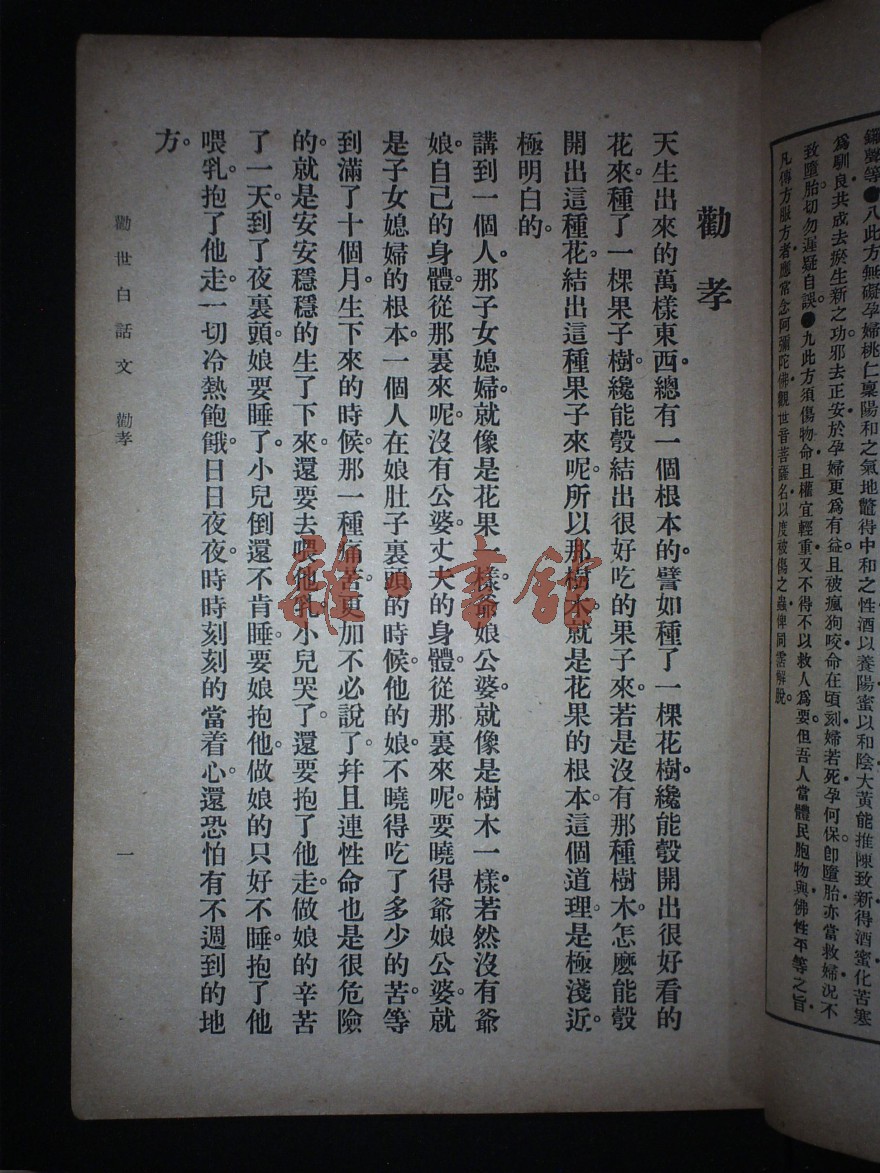 鑼聲等●八此方無礙孕婦桃仁稟陽和之氣地鼈得中和之性酒以養陽蜜以和陰大黃能推陳致新得酒蜜化苦寒
爲馴良共成去瘀生新之功邪去正安於孕婦更爲有益且被瘋狗咬命在頃刻婦若死孕何保卽墮胎亦當救婦況不
致墮胎切勿遲疑自誤●九此方須傷物命且權宜輕重又不得不以救人爲要但吾人當體民胞物與佛性平等之旨
凡傳方服方者應常念阿彌陀佛觀世音菩薩名以度被傷之蟲俾同霑解脫。
勸孝
天生出來的萬樣東西。總有一個根本的。譬如種了一棵花樹。纔能彀開出很好看的
花來。種了一棵果子樹。纔能彀結出很好吃的果子來。若是沒有那種樹木。怎麽能彀
開出這種花。結出這種果子來呢。所以那樹木。就是花果的根本。這個道理。是極淺近
極明白的。
講到一個人。那子女媳婦。就像是花果一樣。爺娘公婆。就像是樹木一樣。若然沒有爺
娘。自己的身體。從那裏來呢。沒有公婆。丈夫的身體。從那裏來呢。要曉得爺娘公婆。就
是子女媳婦的根本。一個人在娘肚子裏頭的時候。他的娘。不曉得吃了多少的苦。等
到滿了十個月。生下來的時候。那一種痛苦。更加不必說了。幷且連性命也是很危險
的。就是安安穩穩的生了下來。還要去喂他乳。小兒哭了。還要抱了他走。做娘的辛苦
了一天。到了夜裏頭。娘要睡了。小兒倒還不肯睡。要娘抱他。做娘的只好不睡。抱了他
喂乳。抱了他走。一切冷熱飽餓。日日夜夜。時時刻刻的當着心。還恐怕有不週到的地
方。
勸世白話文 勸孝 一
雜·書館